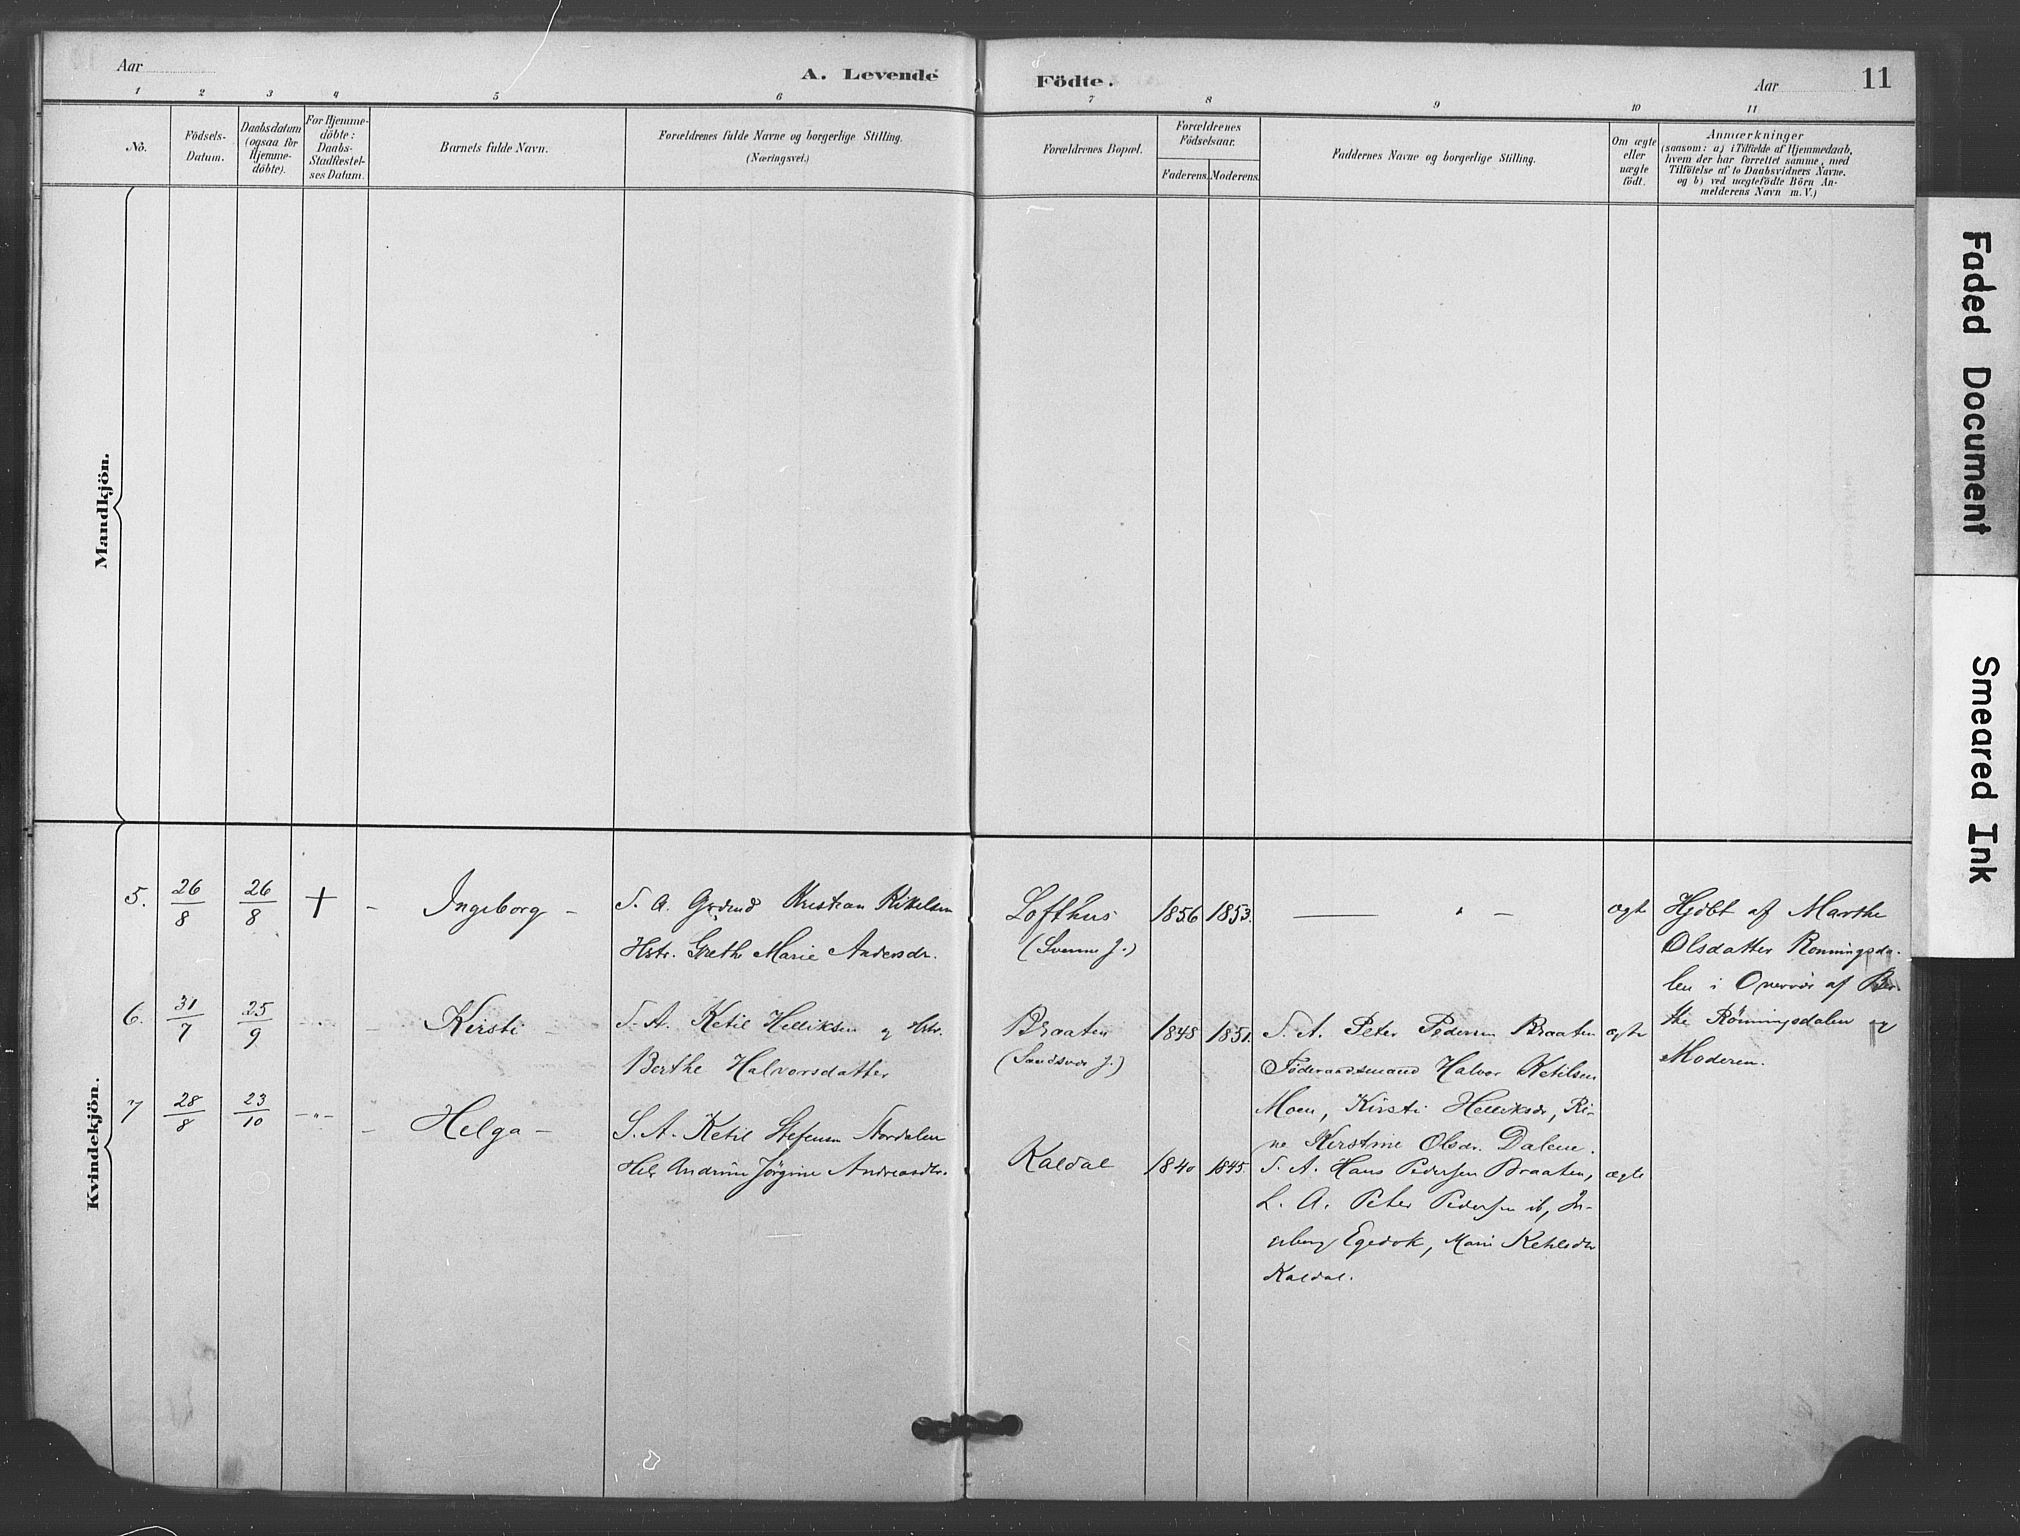 Aar
A. Levende
Födte.
Aar
11
1 2 3 4 5 6 7 8 9 10 11
No.
Födsels-
Datum.
Daabsdatum
(ogsaa for
Hjemme-
döbte).
For Hjemme-
döbte:
Daabs-
Stadfæstel-
ses Datum.
Barnets fulde Navn.
Forældrenes fulde Navne og borgerlige Stilling.
(Næringsvei.)
Forældrenes Bopæl.
Forældrenes
Födselsaar.
Faderens. Moderens.
Faddernes Navne og borgerlige Stilling.
Om ægte
eller
uægte
födt.
Anmærkninger
(saasom: a) i Tilfælde af Hjemmedaab,
hvem der har forrettet samme, med
Tilföielse af to Daabsvidners Navne,
og b) ved uægtefödte Börn An-
melderens Navn m. V.)
Mandkjön.
Kvindekjön.
5. 26/8 26/8 + – Ingeborg –
S. A. Kristian Kittelsen
Hstr. Grethe Marie Andersdr.
Lofthus
(Svenne J.)
1856 1853.
ægte
Hjdbt af Marthe
Olsdatter Rønningsda-
len i Overvær af Ber-
the Rønningsdalen og
Moderen.
6. 31/7 25/9 – Kirsti –
S. A. Ketil Helliksen og Hstr.
Berthe Halvorsdatter
Braaten
(Sandsvær J.)
1848 1851.
S. A. Peter Pedersen Braaten
Föderaadsmand Halvor Ketilsen
Moen, Kirsti Helliksdr, Ri-
ne Kirstine Olsdr. Dalene.
ægte
7 28/8 23/10 –"– – Helga –
S. A. Ketil Stefensen Nordalen
Andrine Jörgine Andreasdtr.
Kaldal
1840 1845.
S. A. Hans Pedersen Braaten,
L. A. Peter Pedersen ib, In-
geborg Egedok, Mari Ketilsdtr
Kaldal.
ægte
Faded Document
Smeared Ink